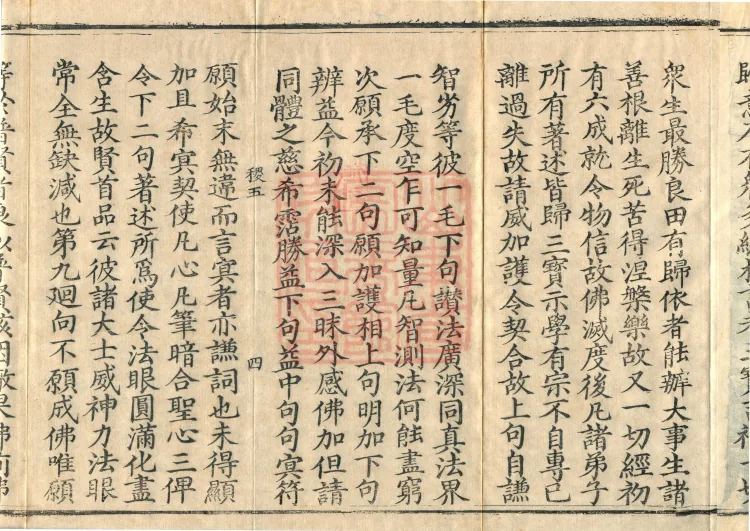 衆生最勝良田有歸依者能辦大事生諸
善根離生死苦得涅槃樂故又一切經初
有六成就令物信故佛滅度後凡諸弟子
所有著述皆歸三寶示學有宗不自專己
離過失故請威加護令契合故上句自謙
智劣等彼一毛下句讃法廣深同真法界
一毛度空乍可知量凡智測法何能盡窮
次願承下二句願加護相上句明加下句
辨益今初未能深入三昧外感佛加但請
同體之慈希霑勝益下句益中句句冥符
稷五
四
願始末無違而言冥者亦謙詞也未得顯
加且希冥契使凡心凡筆暗合聖心三俾
令下二句著述所爲使令法眼圓滿化盡
含生故賢首品云彼諸大士威神力法眼
常全無缺減也第九廻向不願成佛唯願